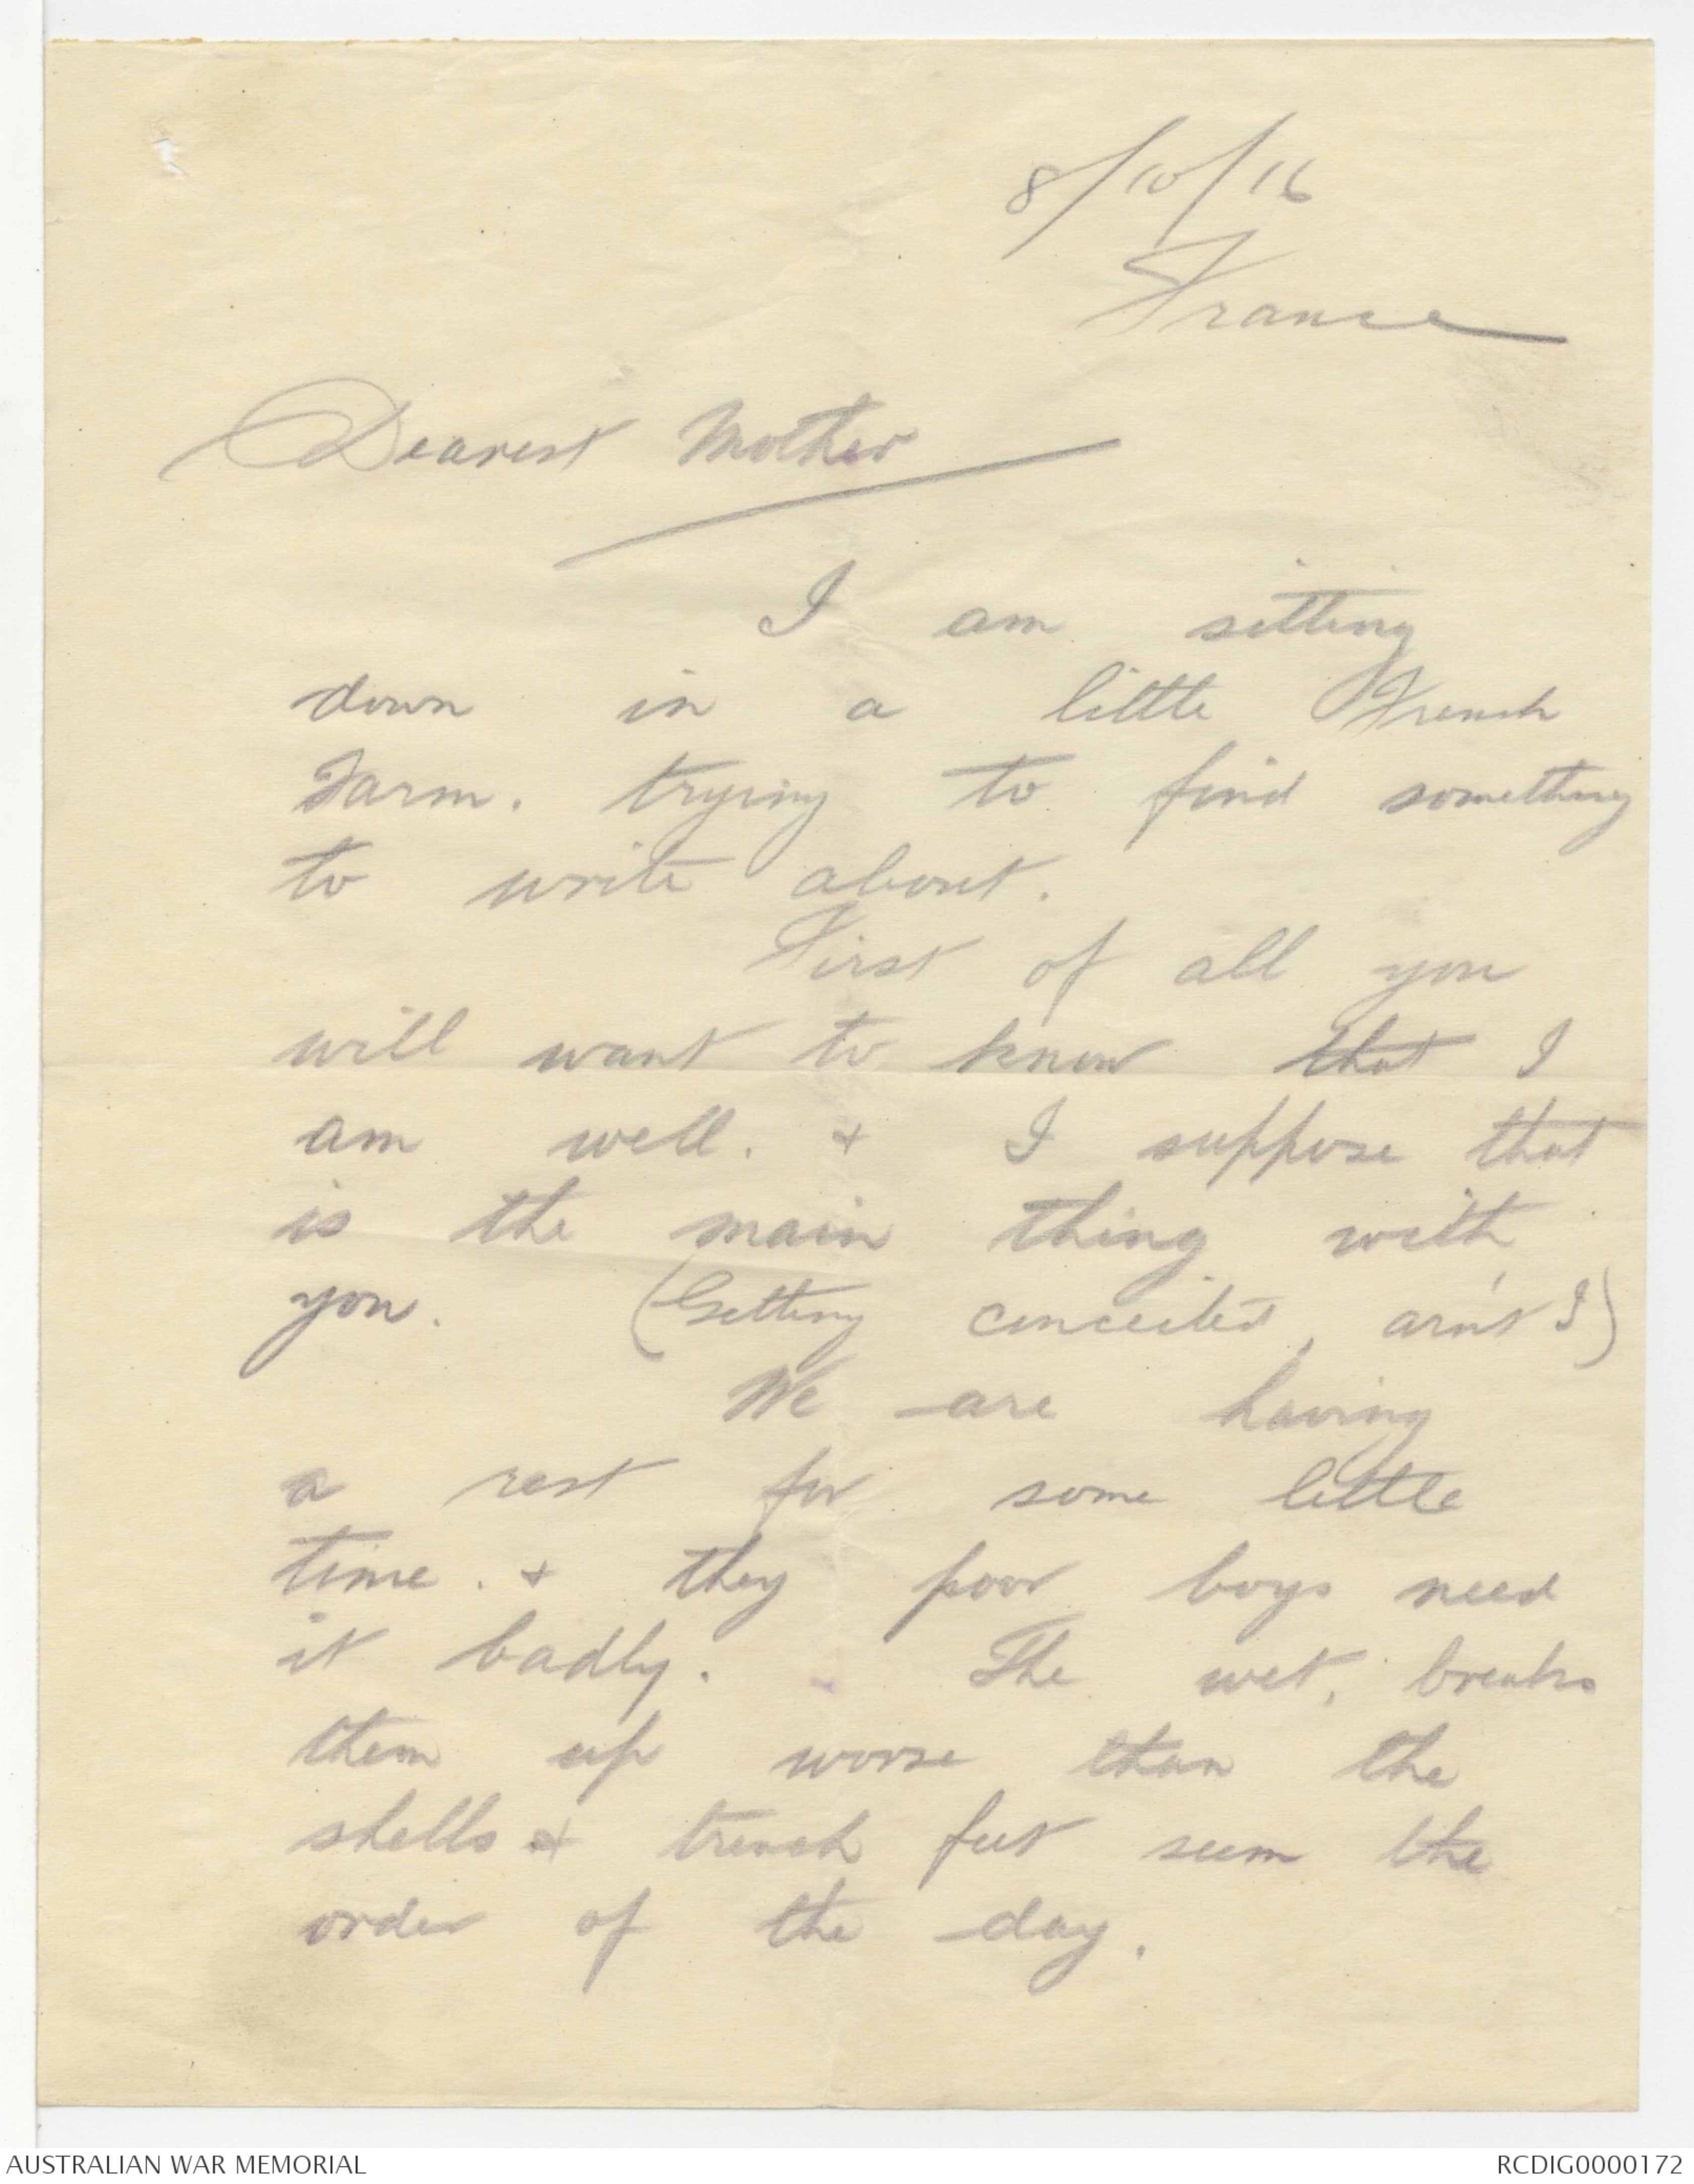 8/10/16
France
Dearest Mother
I am sitting
down in a little French
Farm. trying to find something
to write about.
First of all you
will want to know that I
am well. & I suppose that
is the main thing with
you. (Getting conceited, arn't I)
We are having
a rest for some little
time. & they poor boys need
it badly. The wet, breaks
them up worse than the
shells & trench feet seem the
order of the day.
AUSTRALIAN WAR MEMORIAL
RCDIG0000172